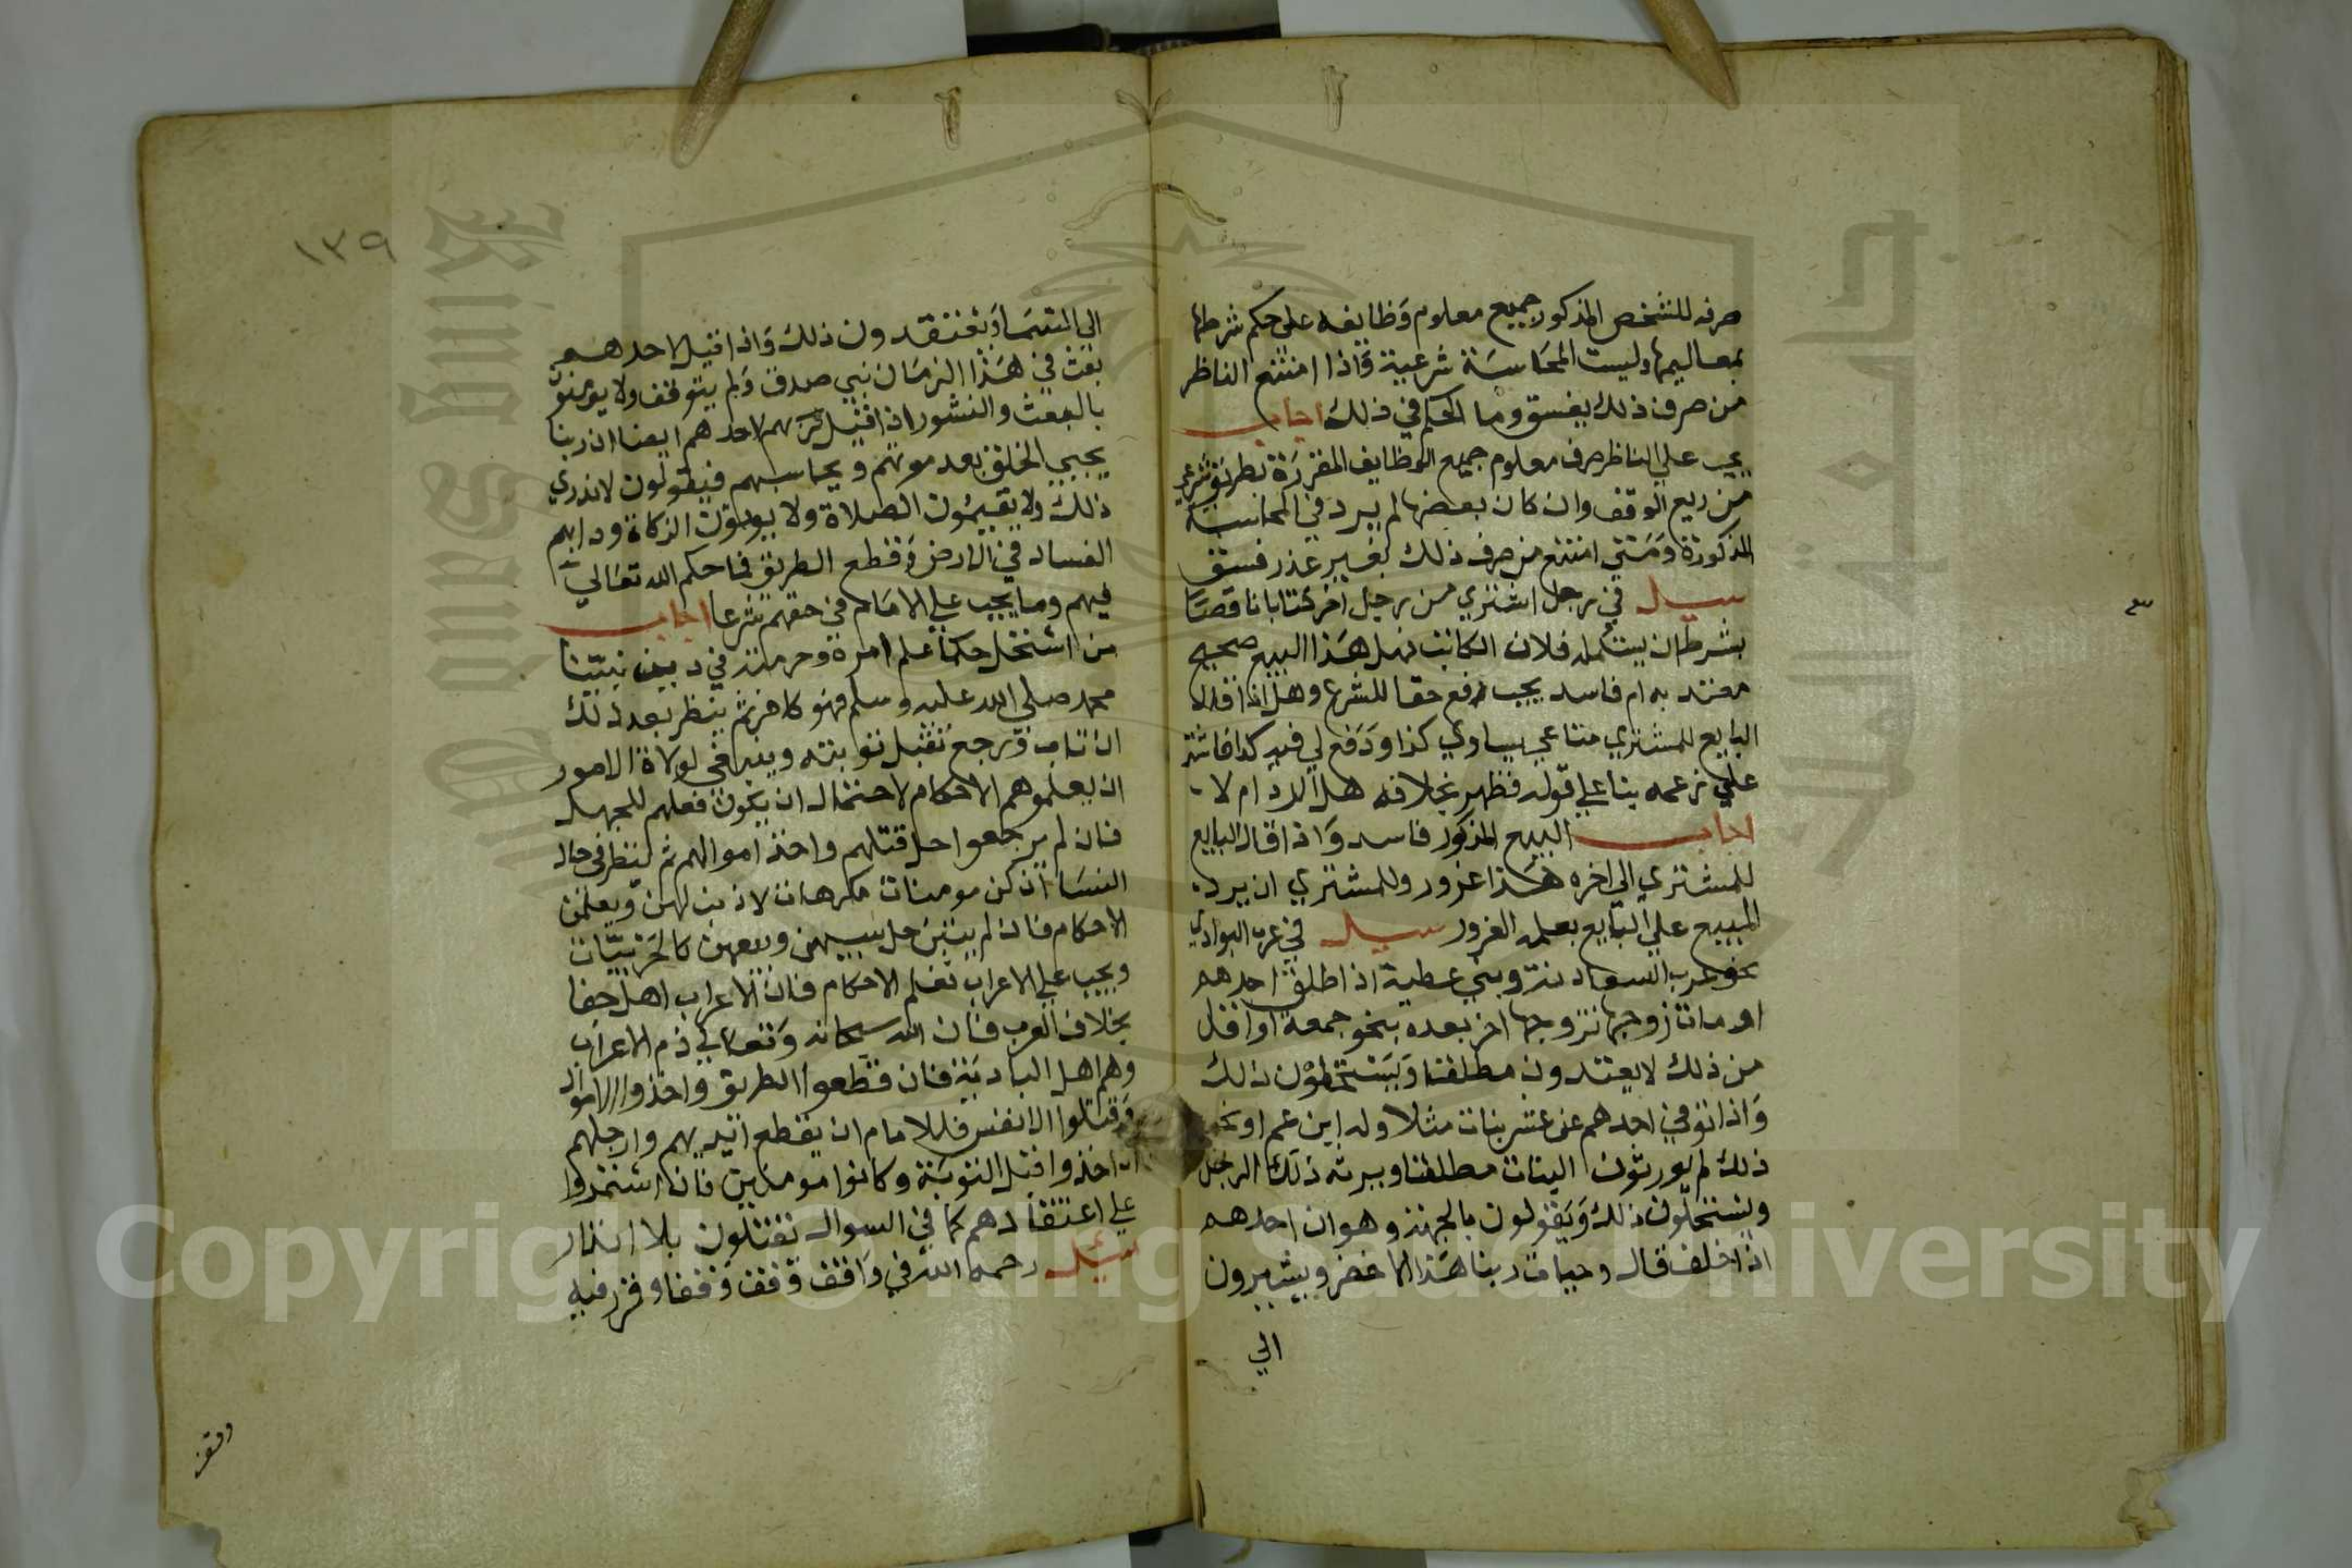 صرفه للشخص المذكور جميع معلوم وظايفه على حكم شرطها
بمعاليمها وليست المحاسبة شرعية فاذا امتنع الناظر
من صرف ذلك يفسق وما الحكم في ذلك اجاب
يجب علي الناظر صرف معلوم جميع الوظايف المقررة بطريق شرعي
من ريع الوقف وان كان بعضها لم يرد في المحاسبة
المذكورة ومتي امتنع من صرف ذلك بغير عذر فسق
سيل في رجل اشتري من رجل اخر كتابا ناقصا
بشرط ان يستكمله فلان الكاتب فهل هذا البيع صحيح
معتد به ام فاسد يجب رفع حقا للشرع وهل اذا قال
البايع للمشتري متاعي يساوي كذا ودفع لي فيه كذا فاشتر
علي زعمه بنا علي قوله فظهر بخلافه هل له الرد ام لا
اجاب البيع المذكور فاسد واذا قال البايع
للمشتري الي اخره هذا غرور وللمشتري ان يرد
المبيع علي البايع بعلمه الغرور سيل في عرب البوادي
نحو عرب السعادنة وبني عطية اذا طلق احدهم
او مات زوجها تزوجها اخر بعده بنحو جمعة او اقل
من ذلك لا يعتدون مطلقا ويستحلون ذلك
واذا توفي احدهم عن عشر بنات مثلا وله ابن عم او نحو
ذلك لم يورثون البنات مطلقا ويرثه ذلك الرجل
ويستحلون ذلك ويقولون بالجهة وهو ان احدهم
اذا حلف قال وحيات ربنا هذا الاخضر ويشيرون
الي
١٣٩
الي السما ويعتقدون ذلك واذا قيل لاحدهم
بعث في هذا الزمان نبي صدق ولم يتوقف ولا يومنون
بالبعث والنشور اذا قيل لاحدهم ايضا ان ربنا
يحيي الخلق بعد موتهم ويحاسبهم فيقولون لا ندري
ذلك ولا يقيمون الصلاة ولا يوتون الزكاة ودابهم
الفساد في الارض وقطع الطريق فما حكم الله تعالي
فيهم وما يجب علي الامام في حقهم شرعا اجاب
من استحل حكما علم امره وحرمته في دين نبينا
محمد صلي الله عليه وسلم فهو كافر ثم ينظر بعد ذلك
ان تاب ورجع تقبل توبته وينبغي لولاة الامور
ان يعلموهم الاحكام لاحتمال ان يكون فعلهم للجهل
فان لم يرجعوا حل قتلهم واخذ اموالهم ثم لينظر في حال
النسا ان كن مومنات مكرهات لا ذنب لهن ويعلمن
الاحكام فان لم يتبن حل سبيهن وبيعهن كالحربيات
ويجب علي الاعراب تعلم الاحكام فان الاعراب اهل جفا
بخلاف العرب فان الله سبحانه وتعالي ذم الاعراب
وهم اهل البادية فان قطعوا الطريق واخذوا الاموال
وقتلوا الانفس فللامام ان يقطع ايديهم وارجلهم
ان اخذوا قبل التوبة وكانوا مومنين فان استمروا
علي اعتقادهم كما في السوال يقتلون بلا انذار
سيل رحمه الله في واقف وقف وقفا وقرر فيه